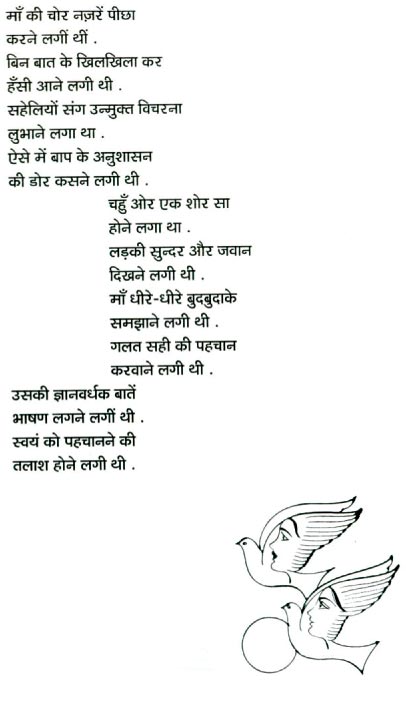 माँ की चोर नज़रें पीछा
करने लगीं थीं .
बिन बात के खिलखिला कर
हँसी आने लगी थी .
सहेलियों संग उन्मुक्त विचरना
लुभाने लगा था .
ऐसे में बाप के अनुशासन
की डोर कसने लगी थी .
चहुँ ओर एक शोर सा
होने लगा था .
लड़की सुन्दर और जवान
दिखने लगी थी .
माँ धीरे-धीरे बुदबुदाके
समझाने लगी थी .
गलत सही की पहचान
करवाने लगी थी .
उसकी ज्ञानवर्धक बातें
भाषण लगने लगीं थी .
स्वयं को पहचानने की
तलाश होने लगी थी .